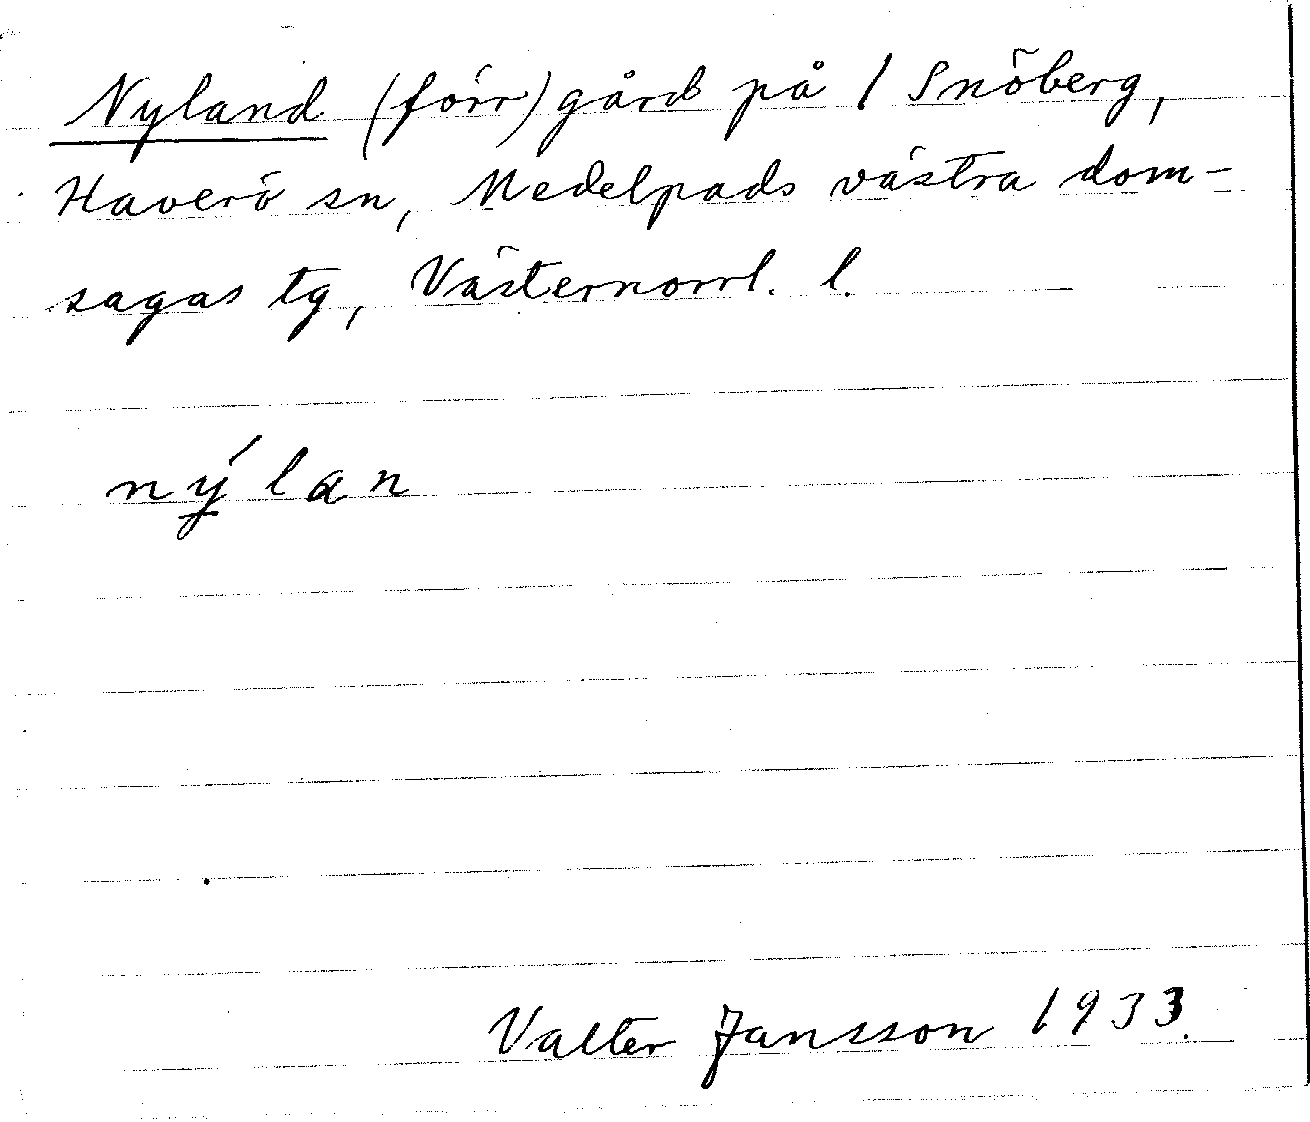 Nyland (förr) gård på 1 Snöberg,
Haverö sn, Medelpads västra dom-
sagas tg, Västernorrl. l.
nýlan
Valter Jansson 1933.